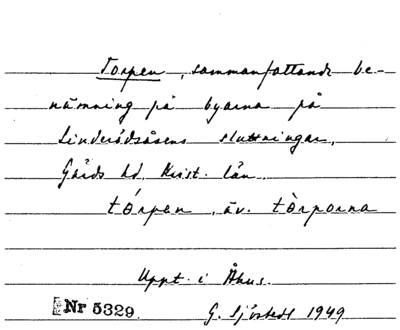 Torpen, sammanfattande be-
nämning på byarna på
Linderödsåsens sluttningar,
Gärds hd, Krist. län.
tórpen, äv. tòrporna
Uppt. i Åhus.
Nr 5329. G. Sjöstedt 1949